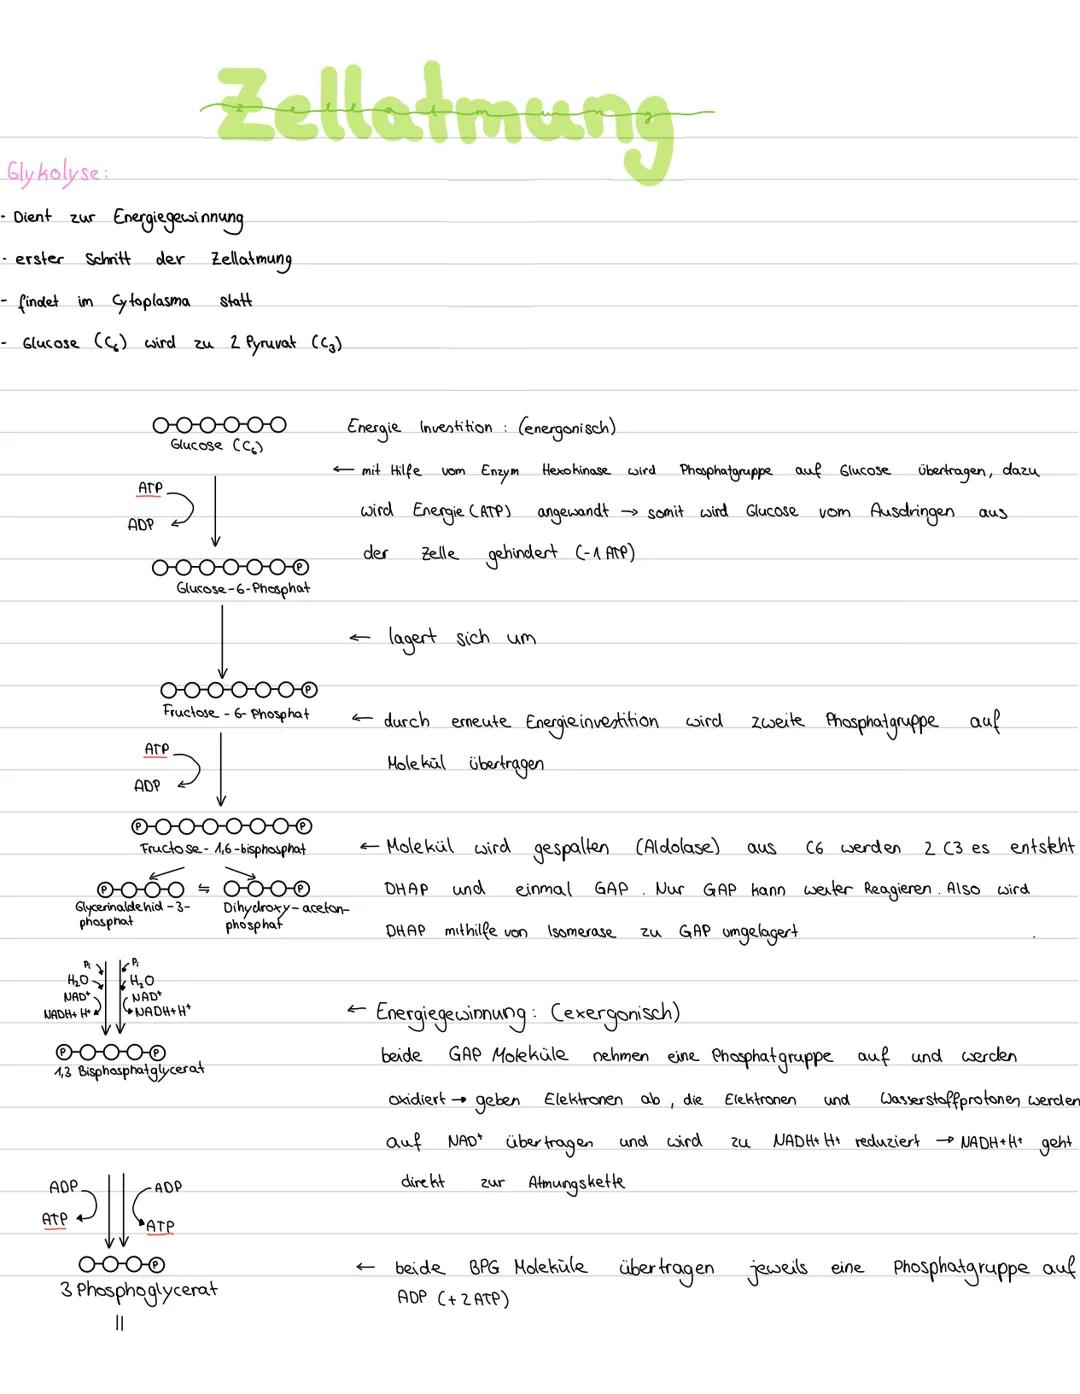 Zellatmung
Glykolyse:
- Dient zur Energiegewinnung
- erster Schritt der Zellatmung
- findet im Cytoplasma statt
- Glucose (C6) wird zu 2 Pyruvat (C3)
Glucose (C6)
Energie Investition : (energonisch)
← mit Hilfe vom Enzym Hexokinase wird Phosphatgruppe auf Glucose übertragen, dazu
ATP
wird Energie (ATP) angewandt → somit wird Glucose vom Ausdringen aus
ADP
der Zelle gehindert (-1 ATP)
P
Glucose-6-Phosphat
← lagert sich um
P
Fructose - 6- Phosphat
← durch erneute Energieinvestition wird zweite Phosphatgruppe auf
ATP
Molekül übertragen
ADP
P P
Fructose - 1,6 -bisphosphat
← Molekül wird gespalten (Aldolase) aus C6 werden 2 C3 es entsteht
P ⇋ P
DHAP und einmal GAP . Nur GAP kann weiter Reagieren . Also wird
Glycerinaldehid -3-
phosphat
Dihydroxy-aceton-
phosphat
DHAP mithilfe von Isomerase zu GAP umgelagert
Pi Pi
H2O H2O
NAD+ NAD+
NADH+ H+ NADH+H+
← Energiegewinnung: (exergonisch)
P P
1,3 Bisphosphatglycerat
beide GAP Moleküle nehmen eine Phosphatgruppe auf und werden
oxidiert → geben Elektronen ab , die Elektronen und Wasserstoffprotonen werden
auf NAD+ übertragen und wird zu NADH+ H+ reduziert → NADH+H+ geht
direkt zur Atmungskette
ADP ADP
ATP ATP
P
3 Phosphoglycerat
← beide BPG Moleküle übertragen jeweils eine Phosphatgruppe auf
ADP (+ 2 ATP)
||